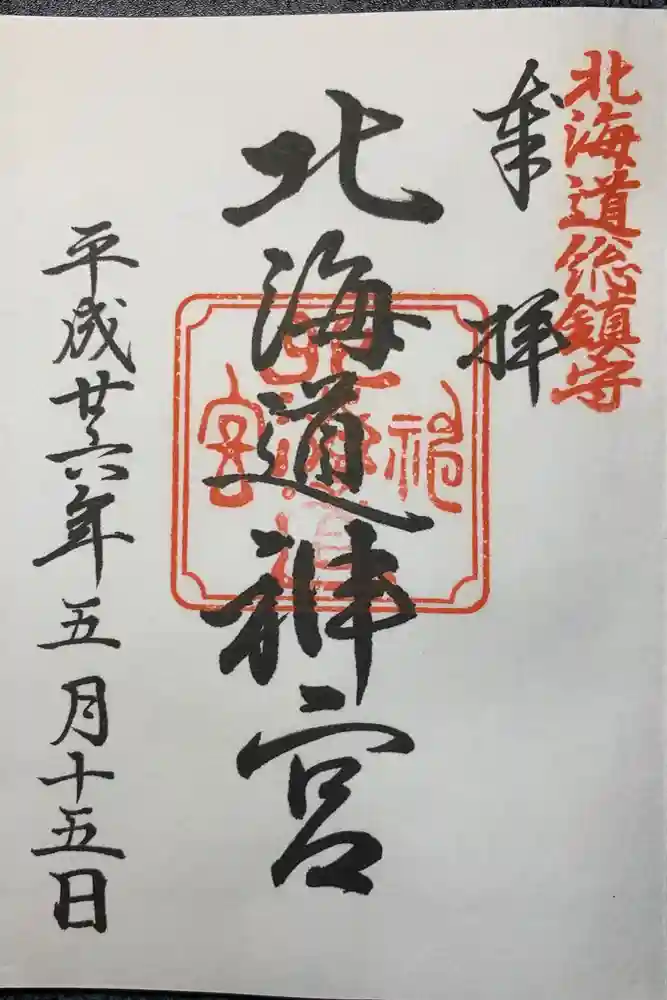 北海道総鎮守
奉拝
北海道神宮
平成廿六年五月十五日